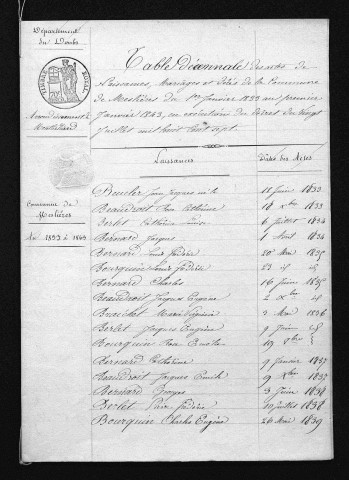 Département
du Doubs
TIMBRE ROYAL
Arrondissement de
Montbéliard
Commune de
Meslières
de 1833 à 1843
Table décennale des actes de
Naissances, Mariages et Décès de la Commune
de Meslières du 1er Janvier 1833 au premier
Janvier 1843, en exécution du Décret du Vingt
Juillet mil huit Cent sept.
Naissances
Dates des Actes
Beucler Jean Jacques 11 Juin 1833
Beaudroit Catherine 18 Xbre 1833
Berlet Catherine Louise 6 Juillet 1834
Bernard Jacques 1 Aout 1834
Bernard Louis Frédéric 20 Mai 1835
Bourquin Louis Frédéric 23
Bernard Charles 16 Juin 1835
Beaudroit Jacques Eugène 2 Xbre
Marie 3 Mai 1836
Berlet Jacques Eugène 9 Juin
Bourquin 19 9bre
Bernard Catherine 9 Janvier 1837
Beaudroit Jacques Emile 9 Xbre 1837
Bernard Georges 3 Juin 1838
Berlet Pierre Frédéric 10 Juillet 1838
Bourquin Charles Eugène 26 Mai 1839